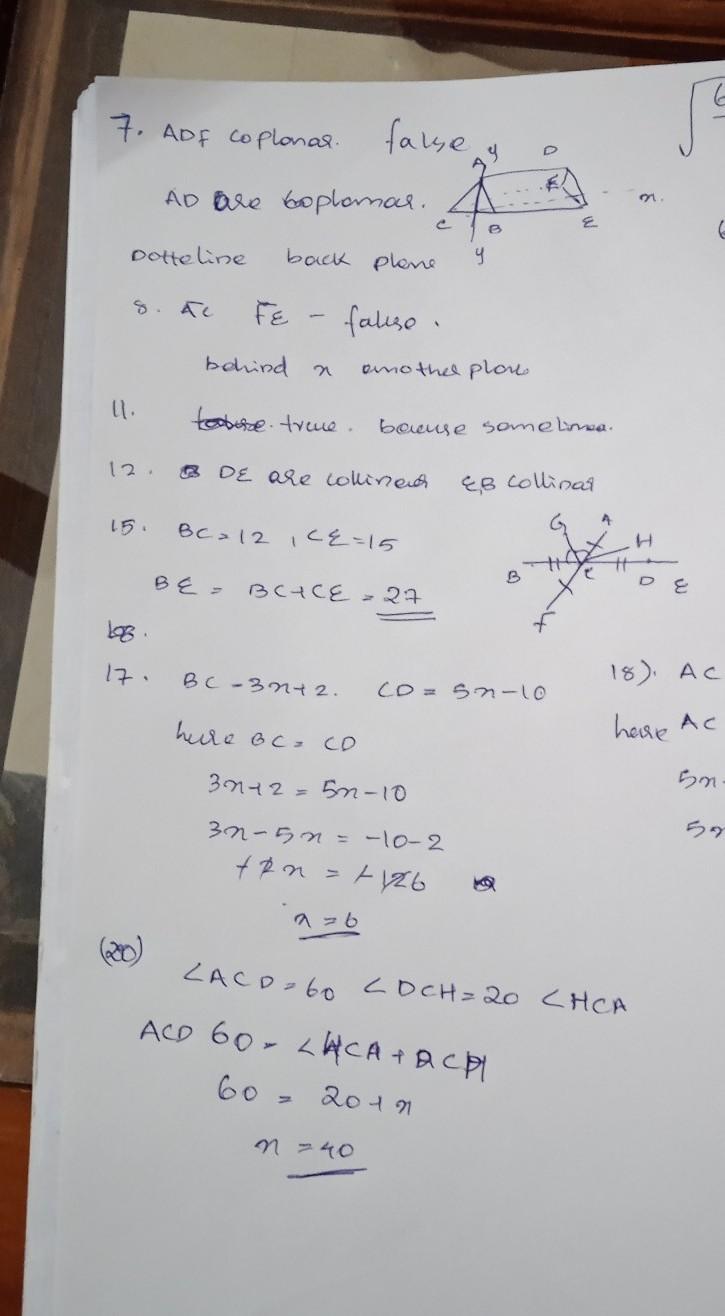 7. ADF coplanar. false
AD are coplanar.
A y D
F
x.
C B E
y
Dotteline back plane
8. AC FE - false.
behind x another plane
11. true. because sameline.
12. DE are collinear EB collinar
15. BC=12, CE=15
G A
H
B C D E
F
BE = BC+CE = 27
17. BC -3x+2. CD = 5x-10
here BC= CD
3x+2 = 5x-10
3x-5x = -10-2
+2x = +126
x=6
18). AC
here AC
5x
5x
(20)
∠ACD=60 ∠DCH=20 ∠HCA
ACD 60 = ∠HCA + DCH
60 = 20+x
x = 40